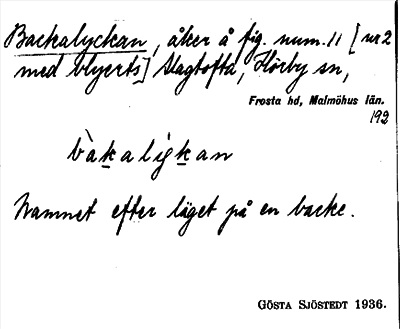 Backalyckan, åker å fig. num. 11 [nr 2
med blyerts] Slagtofta, Hörby sn,
Frosta hd, Malmöhus län.
192
bàkaligkan
Namnet efter läget på en backe.
GÖSTA SJÖSTEDT 1936.